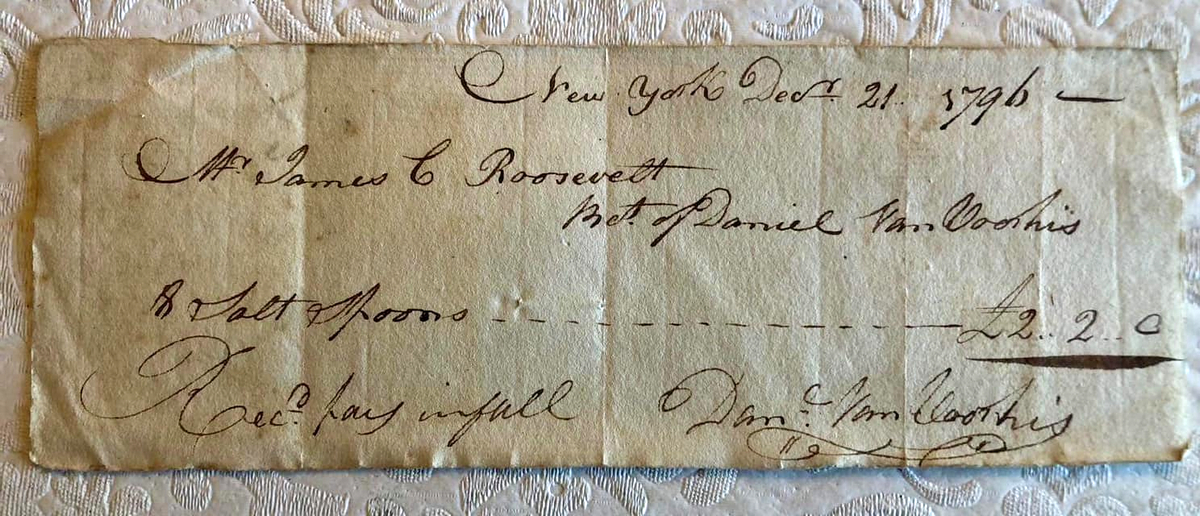 New York Decr. 21. 1796
Mr James C Roosevelt
Bot. of Daniel Van Voorhis
8 Salt Spoons £2.. 2.. 0
Recd. pay in full Danl. Van Voorhis